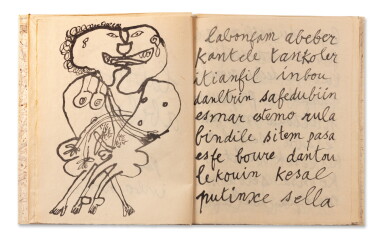 labonçam abeber
kantele tankoler
itianfil inbou
danltrin safedubièn
esmar estemo rula
bindile sitem pasa
esfe boure dantou
le kouin kesal
putinxe sella